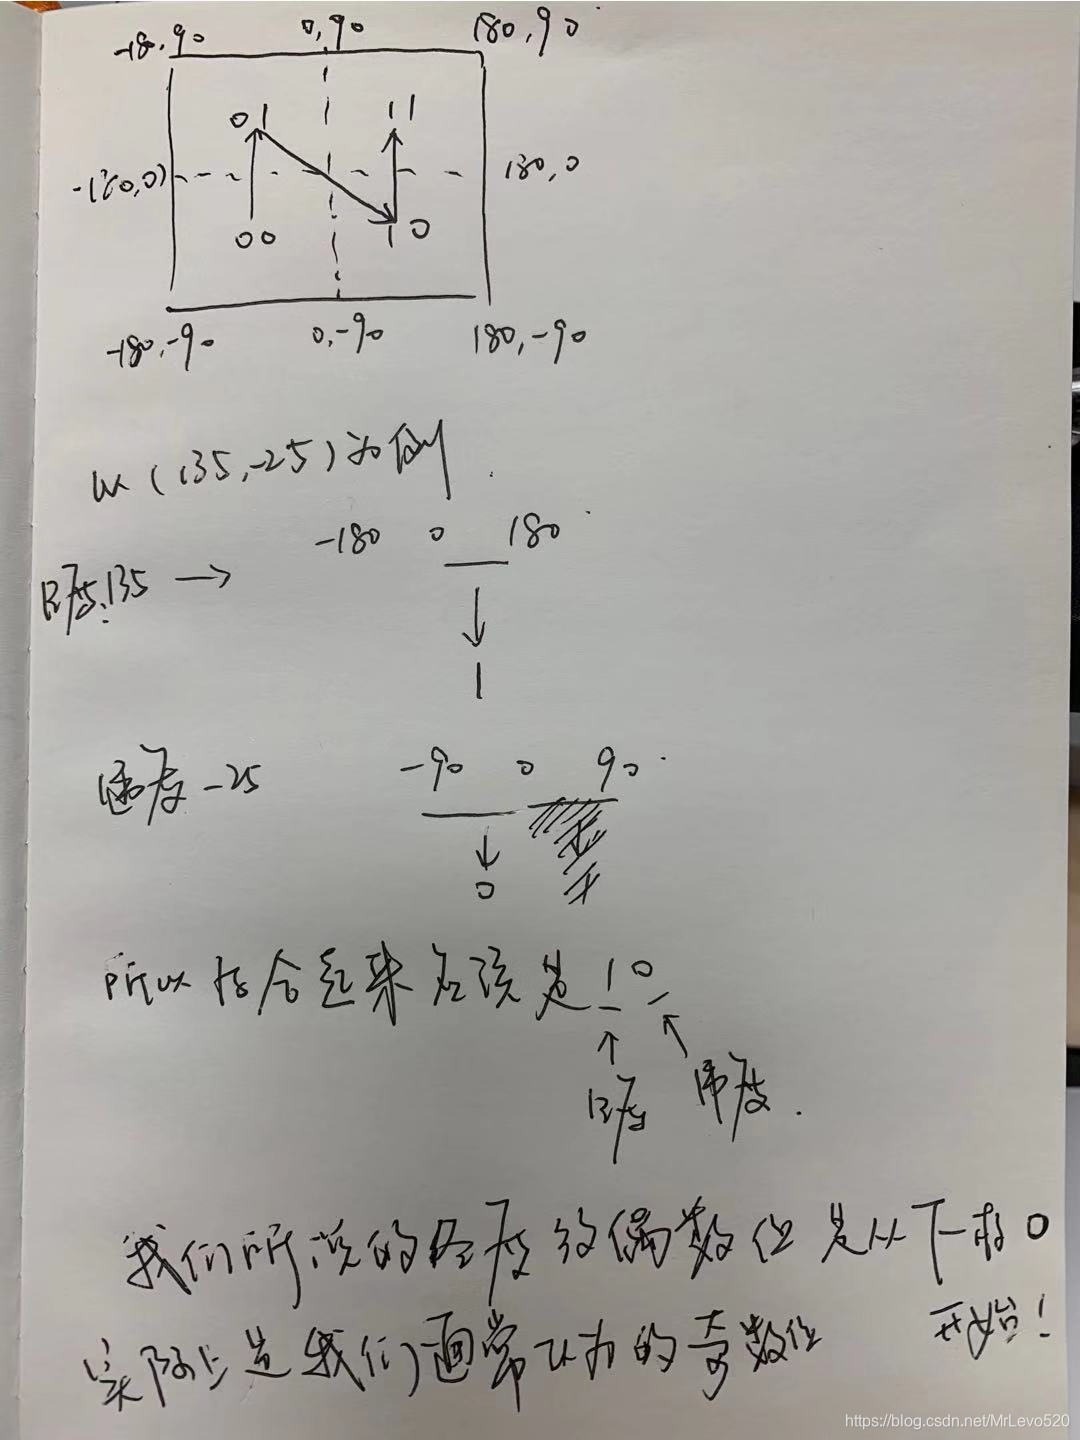 -18,90 0,90 180,90
01 11
-180,0) 180,0
00 10
-180,-90 0,-90 180,-90
以(135,-25)为例.
-180 0 180
经度135 →
↓
1
纬度-25 -90 0 90
↓
0
所以结合起来应该是10
↑ ↖
经度 纬度.
我们所说的经度的偶数位是从下标0
开始!
实际上是我们通常以为的奇数位
https://blog.csdn.net/MrLevo520